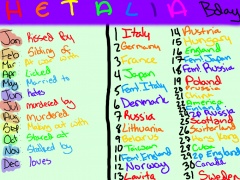 HETALIA Bday
Jan Kissed By
Feb Sibling of
Mar At war with
Apr Licked
May Married to
Jun hates
Jul murdered by
Aug Murdered
Sep Making out with
Oct
Nov Stalked by
Dec loves
1 Italy
2 Germany
3 France
4 Japan
5 Fem! Italy
6 Denmark
7 Russia
8 Lithuania
9 Belarus
10 Taiwan
11 Fem! England
12 Norway
13 Latvia
14 Austria
15 Hungary
16 England
17 Fem! Japan
18 Fem! Russia
19 Poland
20 Prussia
21 China
22 America
23 Finland
24 2p Russia
25 Scotland
26 Switzerland
27
28 Cuba
29 2p England
30 Canada
31 Sweden